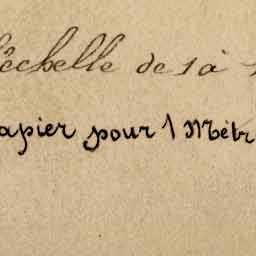 l'échelle de 1 à
apier pour 1 Mètr